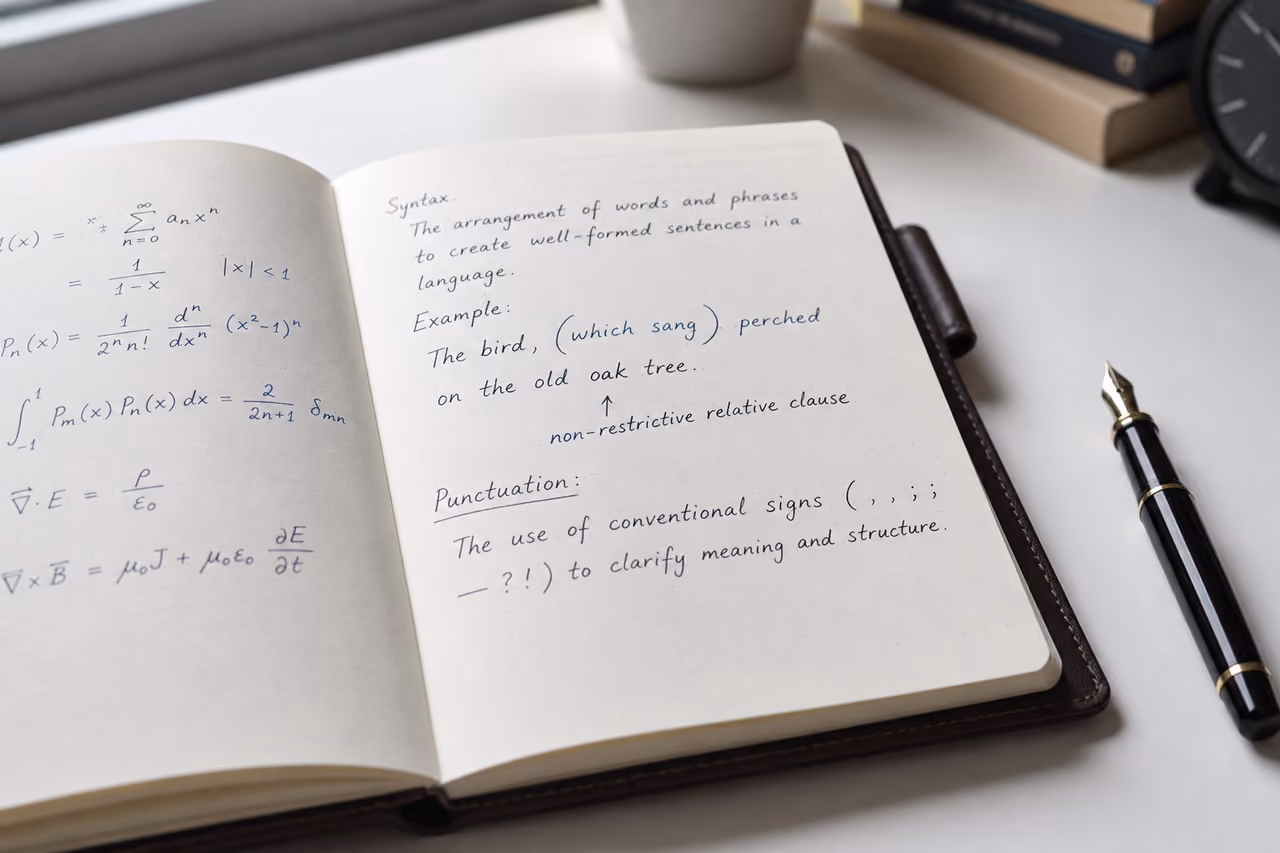 (x) = ∑_{n=0}^{∞} a_n x^n
= 1/(1-x) |x| < 1
P_n(x) = 1/(2^n n!) d^n/dx^n (x^2-1)^n
∫_{-1}^{1} P_m(x) P_n(x) dx = 2/(2n+1) δ_{mn}
∇⃗ · E = ρ/ε_0
∇̅ × B̅ = μ_0 J + μ_0 ε_0 ∂E/∂t
Syntax.
The arrangement of words and phrases
to create well-formed sentences in a
language.
Example:
The bird, (which sang) perched
on the old oak tree.
↑
non-restrictive relative clause
Punctuation:
The use of conventional signs ( , , ; ;
— ? ! ) to clarify meaning and structure.